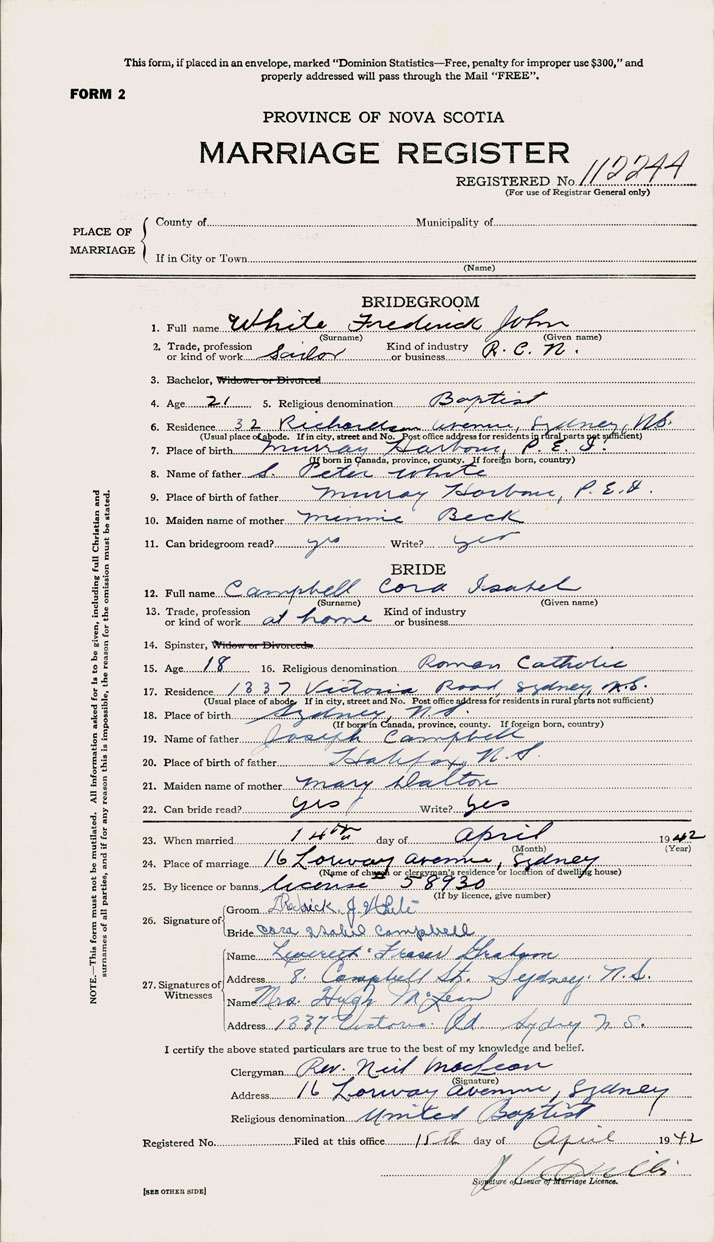 This form, if placed in an envelope, marked "Dominion Statistics—Free, penalty for improper use $300," and
properly addressed will pass through the Mail "FREE".
FORM 2
PROVINCE OF NOVA SCOTIA
MARRIAGE REGISTER
REGISTERED No. 112244
(For use of Registrar General only)
PLACE OF MARRIAGE
County of Municipality of
If in City or Town
(Name)
BRIDEGROOM
1. Full name White Frederick John
(Surname) (Given name)
2. Trade, profession or kind of work Sailor Kind of industry or business R.C.N.
3. Bachelor, Widower or Divorced
4. Age 21 5. Religious denomination Baptist
6. Residence 32 Richardson Avenue, Sydney, N.S.
(Usual place of abode. If in city, street and No. Post office address for residents in rural parts not sufficient)
7. Place of birth Murray Harbour, P.E.I.
(If born in Canada, province, county. If foreign born, country)
8. Name of father S. Peter White
9. Place of birth of father Murray Harbour, P.E.I.
10. Maiden name of mother Minnie Beck
11. Can bridegroom read? yes Write? yes
BRIDE
12. Full name Campbell Cora Isabel
(Surname) (Given name)
13. Trade, profession or kind of work at home Kind of industry or business
14. Spinster, Widow or Divorced
15. Age 18 16. Religious denomination Roman Catholic
17. Residence 1337 Victoria Road, Sydney, N.S.
(Usual place of abode. If in city, street and No. Post office address for residents in rural parts not sufficient)
18. Place of birth Sydney, N.S.
(If born in Canada, province, county. If foreign born, country)
19. Name of father Joseph Campbell
20. Place of birth of father Halifax, N.S.
21. Maiden name of mother Mary Dalton
22. Can bride read? yes Write? yes
23. When married 14th day of April 1942
(Month) (Year)
24. Place of marriage 16 Lorway Avenue, Sydney
(Name of church or clergyman's residence or location of dwelling house)
25. By licence or banns license 58930
(If by licence, give number)
26. Signature of
Groom Fredrick J. White
Bride Cora Isabel Campbell
27. Signatures of Witnesses
Name Leverett Fraser Graham
Address 8 Campbell St. Sydney N.S.
Name Mrs. Hugh McLean
Address 1337 Victoria Rd Sydney N.S.
I certify the above stated particulars are true to the best of my knowledge and belief.
Clergyman Rev. Neil MacLean
(Signature)
Address 16 Lorway Avenue, Sydney
Religious denomination United Baptist
Registered No. Filed at this office 15th day of April 1942
Signature of Issuer of Marriage Licence.
[SEE OTHER SIDE]
NOTE.—This form must not be mutilated. All information asked for is to be given, including full Christian and
surnames of all parties, and if for any reason this is impossible, the reason for the omission must be stated.